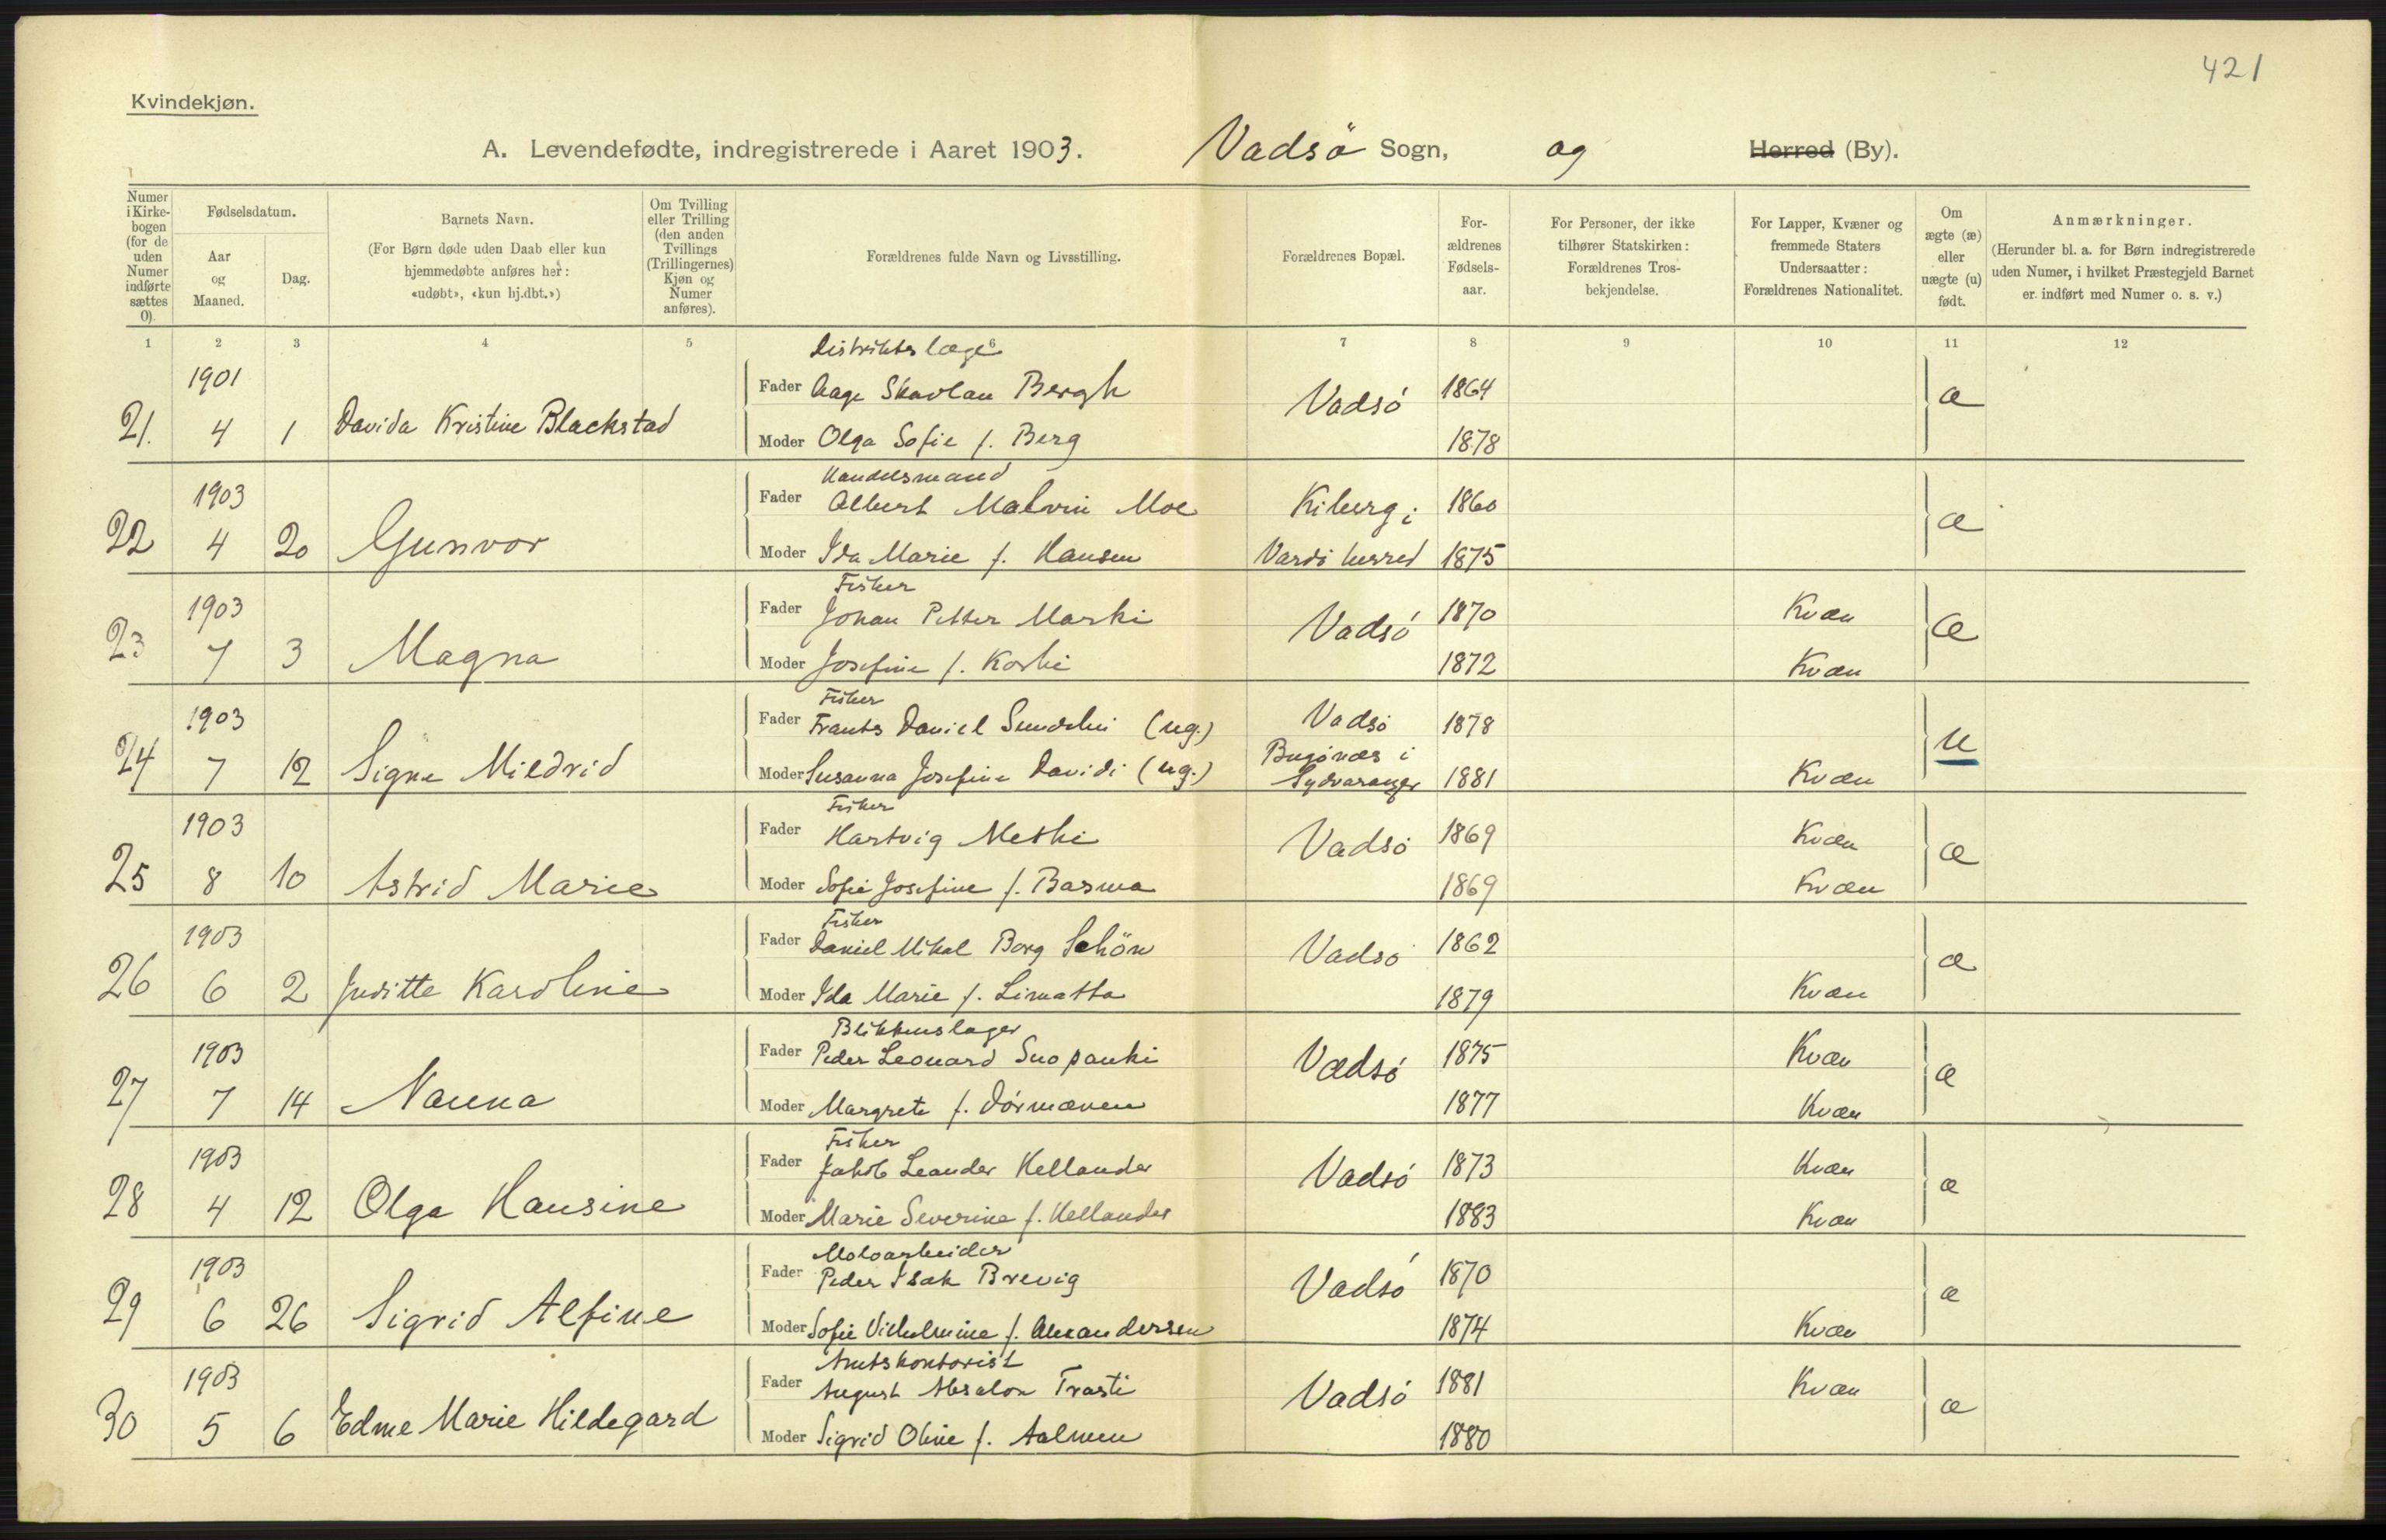 421
Kvindekjøn.
A. Levendefødte, indregistrerede i Aaret 1903. Vadsö Sogn, og Herred (By).
Numer i Kirkebogen (for de uden Numer indførte sættes 0).
Fødselsdatum.
Aar og Maaned.
Dag.
Barnets Navn.
(For Børn døde uden Daab eller kun hjemmedøbte anføres her: «udøbt», «kun hj.dbt.»)
Om Tvilling eller Trilling (den anden Tvillings (Trillingernes) Kjøn og Numer anføres).
Forældrenes fulde Navn og Livsstilling.
Forældrenes Bopæl.
Forældrenes Fødselsaar.
For Personer, der ikke tilhører Statskirken: Forældrenes Trosbekjendelse.
For Lapper, Kvæner og fremmede Staters Undersaatter: Forældrenes Nationalitet.
Om ægte (æ) eller uægte (u) født.
Anmærkninger.
(Herunder bl. a. for Børn indregistrerede uden Numer, i hvilket Præstegjeld Barnet er indført med Numer o. s. v.)
1 2 3 4 5 6 7 8 9 10 11 12
Distriktslæge
1901 Fader Aage Skavlan Bergh Vadsø 1864 æ
21. 4 1 Davida Kristine Blackstad Moder Olga Sofie f. Berg 1878
Handelsmand
1903 Fader Albert Malvin Moe Kiberg i 1860 æ
22 4 20 Gunvor Moder Ida Marie f. Hansen Vardø herred 1875
Fisker
1903 Fader Johan Petter Marki Vadsø 1870 Kvæn æ
23 7 3 Magna Moder Josefine f. Koski 1872 Kvæn
Fisker
1903 Fader Frants Daniel Sundelin (ug.) Vadsø 1878 u
24 7 12 Signe Mildrid Moder Susanna Josefine Davidi (ug.) Bugønæs i Sydvaranger 1881 Kvæn
Fisker
1903 Fader Hartvig Methi Vadsø 1869 Kvæn æ
25 8 10 Astrid Marie Moder Sofie Josefine f. Basma 1869 Kvæn
Fisker
1903 Fader Daniel Mikal Borg Schön Vadsø 1862 æ
26 6 2 Juditte Karoline Moder Ida Marie f. Limatta 1879 Kvæn
Blikkenslager
1903 Fader Peder Leonard Suopanki Vadsø 1875 Kvæn æ
27 7 14 Nanna Moder Margrete f. Dørmænen 1877 Kvæn
Fisker
1903 Fader Jakob Leander Hellander Vadsø 1873 Kvæn æ
28 4 12 Olga Hansine Moder Marie Severine f. Hellander 1883 Kvæn
Moloarbeider
1903 Fader Peder Isak Brevig Vadsø 1870 æ
29 6 26 Sigrid Alfine Moder Sofie Vilhelmine f. Alexandersen 1874 Kvæn
Amtskontorist
1903 Fader August Absalon Trasti Vadsø 1881 Kvæn æ
30 5 6 Edme Marie Hildegard Moder Sigrid Oline f. Aalmen 1880